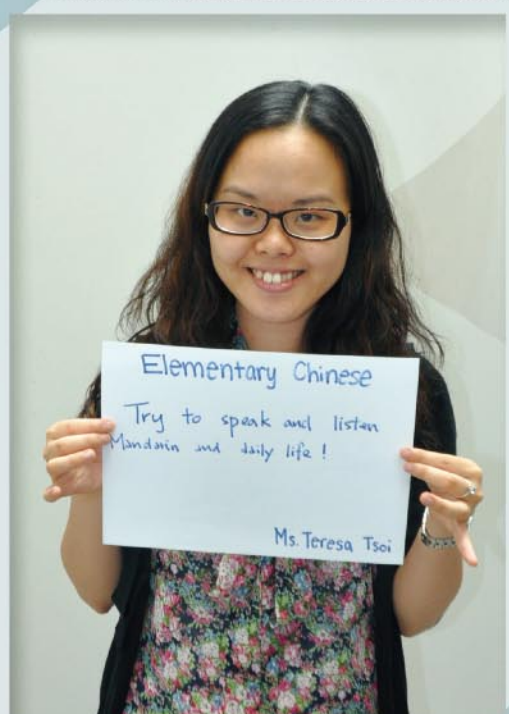 Elementary Chinese
Try to speak and listen
Mandarin and daily life !
Ms. Teresa Tsoi